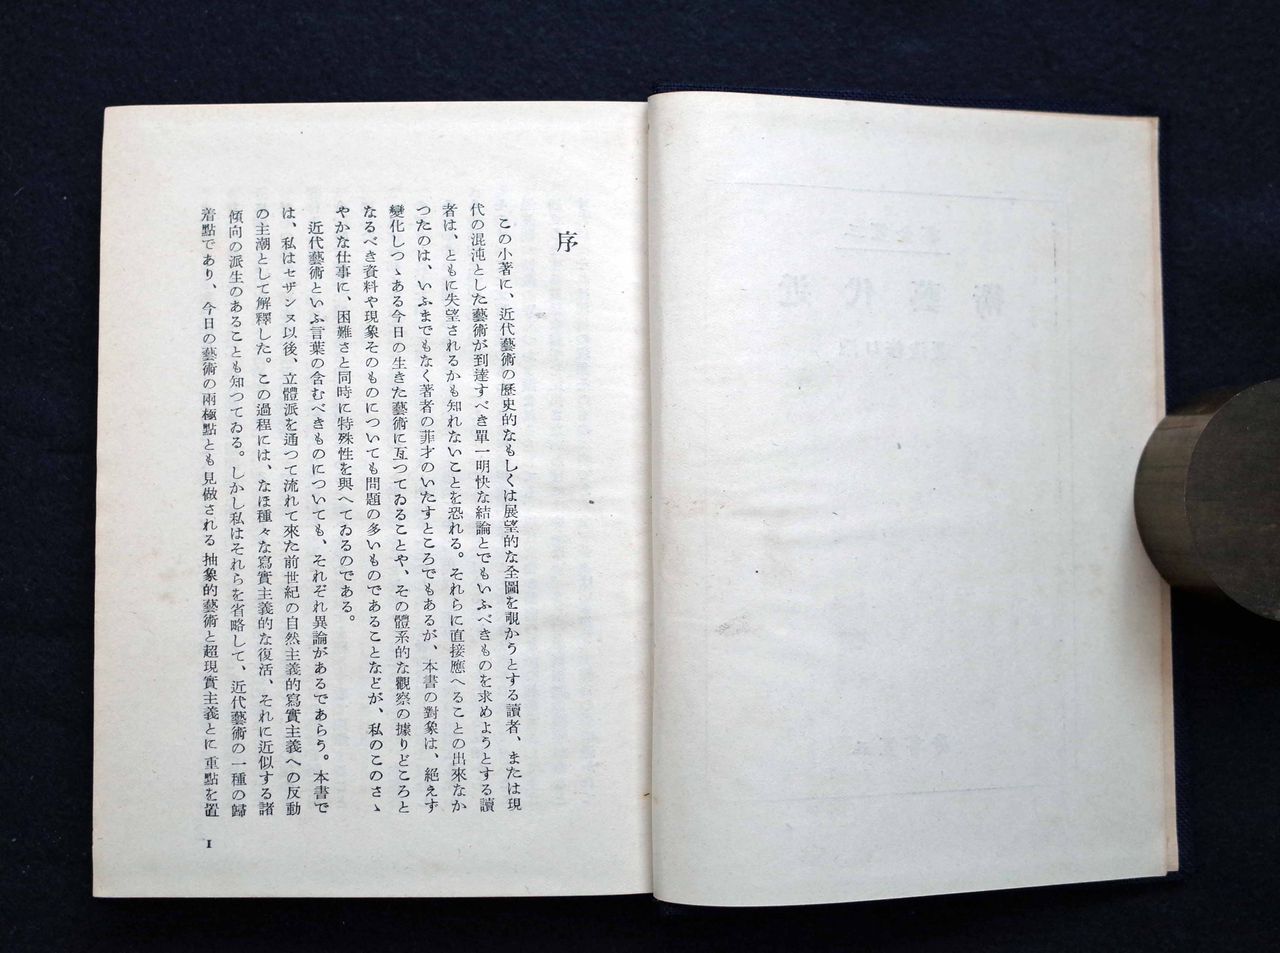 序
この小著に、近代藝術の歴史的なもしくは展望的な全圖を覗かうとする讀者、または現
代の混沌とした藝術が到達すべき單一明快な結論とでもいふべきものを求めようとする讀
者は、ともに失望されるかも知れないことを恐れる。それらに直接應へることの出來なか
つたのは、いふまでもなく著者の菲才のいたすところでもあるが、本書の對象は、絶えず
變化しつゝある今日の生きた藝術に亙つてゐることや、その體系的な觀察の據りどころと
なるべき資料や現象そのものについても問題の多いものであることなどが、私のこのさゝ
やかな仕事に、困難さと同時に特殊性を與へてゐるのである。
近代藝術といふ言葉の含むべきものについても、それぞれ異論があるであらう。本書で
は、私はセザンヌ以後、立體派を通つて流れて來た前世紀の自然主義的寫實主義への反動
の主潮として解釋した。この過程には、なほ種々な寫實主義的な復活、それに近似する諸
傾向の派生のあることも知つてゐる。しかし私はそれらを省略して、近代藝術の一種の歸
着點であり、今日の藝術の兩極點とも見做される抽象的藝術と超現實主義とに重點を置
1
近代藝術